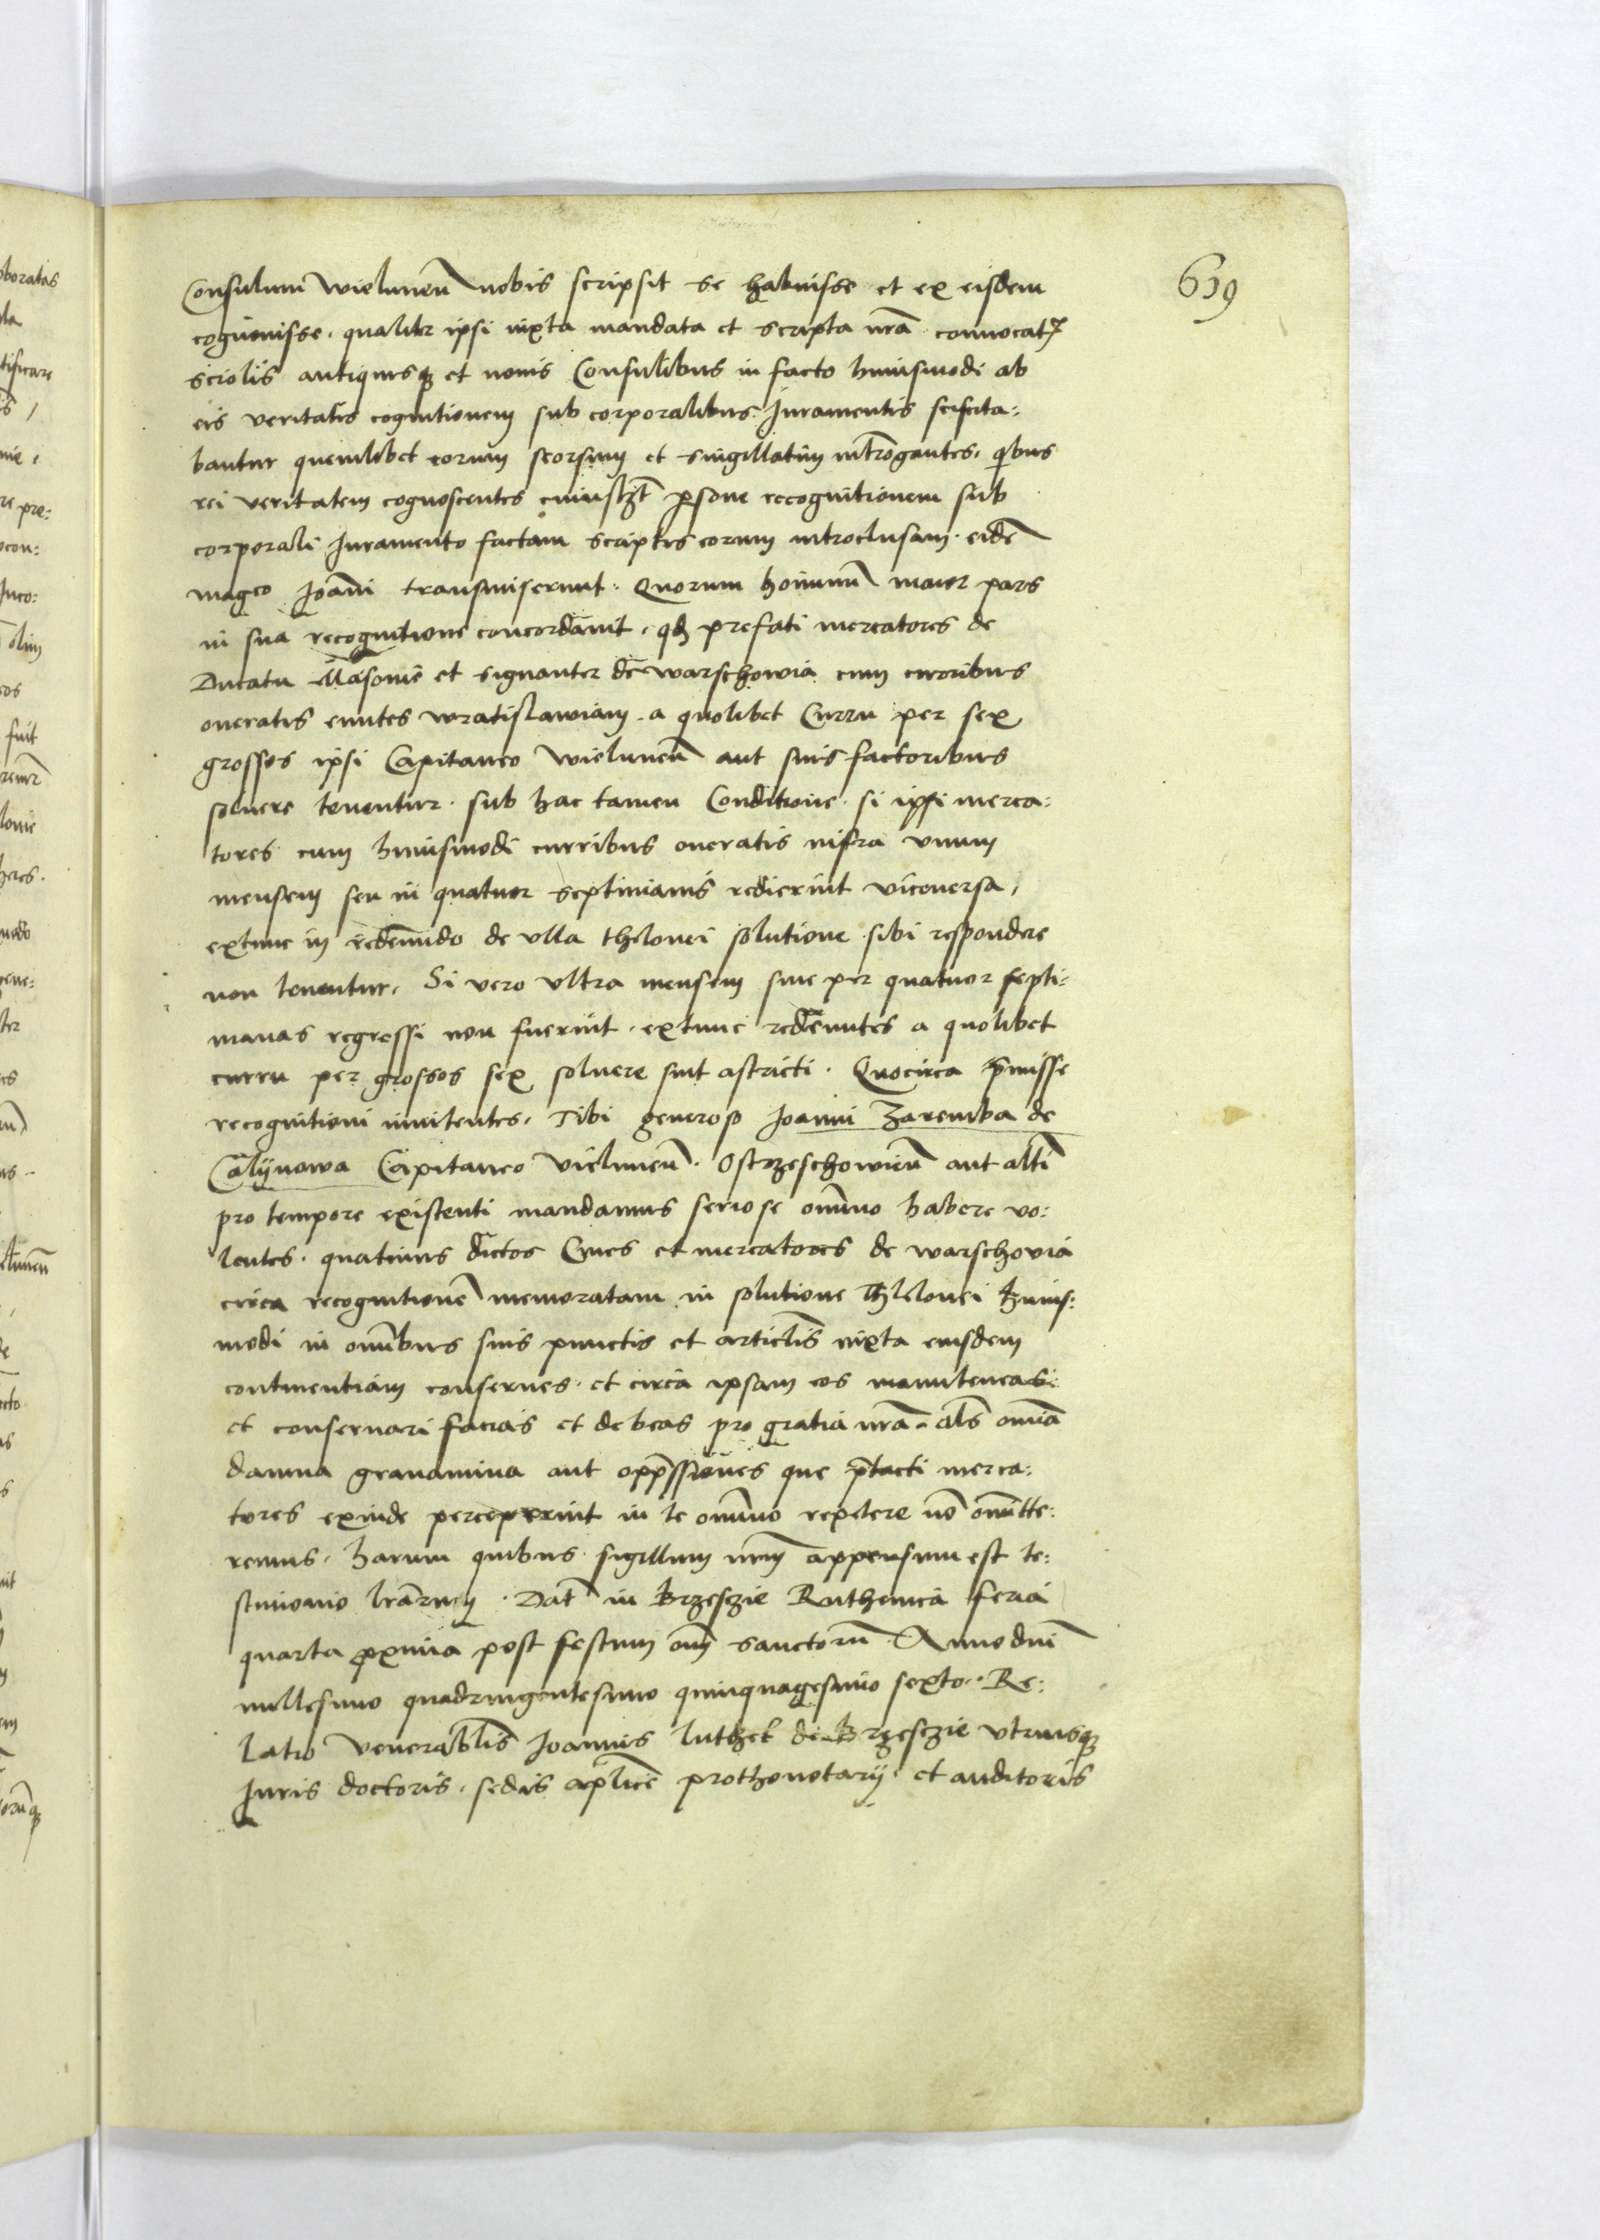 639
Consulum wielunen̄ nobis scripsit se habuisse et ex eisdem
cognouisse · qualiter ipsi iuxta mandata et scripta nrā conuocatꝫ
scriolis antiquisqꝫ et nouis Consulibus in facto huiusmodi ab
eis veritatis cognitionem sub corporalibus Iuramentis scisita:
bantur quemlibet eorum seorsum et singillatim intrōgantes · qibus
rei veritatem cognoscentes cuiuslzt̄ psone recognitionem sub
corporali Iuramento factam scriptis eorum introclusam · eidē
magco Joāni transmiserunt · Quorum hominū maior pars
in sua recognitione concordauit · qđ prefati mercatores de
Ducatu Masouie et signanter de warschowia cum curribus
oneratis euntes wratislawiam · a quolibet Curru per sex
grossos ipsi Capitaneo wielunen̄ aut suis factoribus
soluere tenentur · sub hac tamen Conditione · si ipsi merca:
tores cum huiusmodi curribus oneratis infra vnum
mensem seu in quatuor septimanis redierint viceuersa,
extunc in redeundo de vlla thelonei solutione sibi respondere
non tenentur, Si vero vltra mensem siue per quatuor septi:
manas regressi non fuerint · extunc redeuntes a quolibet
curru per grossos sex soluere sint astricti · Quocirca p̄misse
recognitioni innitentes, Tibi generoso Joanni Zaremba de
Calijnowa Capitaneo vielunen̄ · Ostrzeschowien̄ aut altī
pro tempore existenti mandamus seriose omīno habere vo:
lentes · quatinus dictos Ciues et mercatores de warschouia
circa recognitionē memoratam in solutione Thelonei huius:
modi in omībus suis punctis et articlis iuxta eiusdem
continentiam conserues · et circa ipsam eos manuteneas
et conseruari facias et debeas pro gratia nrā · als omīa
damna grauamina aut opp̄ssiones que p̄tacti merca:
tores exinde perceperint in te omīno repetere nō omitte:
remus · harum quibus sigillum nrm̄ appensum est te:
stimonio lrārum · Dat̄ in Brzesczie Ruthenica feria
quarta proxima post festum om̄ sanctorū · Anno dnī
millesimo quadringentesimo quinquagesimo sexto · Re:
latio venerablis Joannis luthek de Brzesczie vtriusqꝫ
Iuris doctoris · sedis aplicē prothonotarij · et auditoris